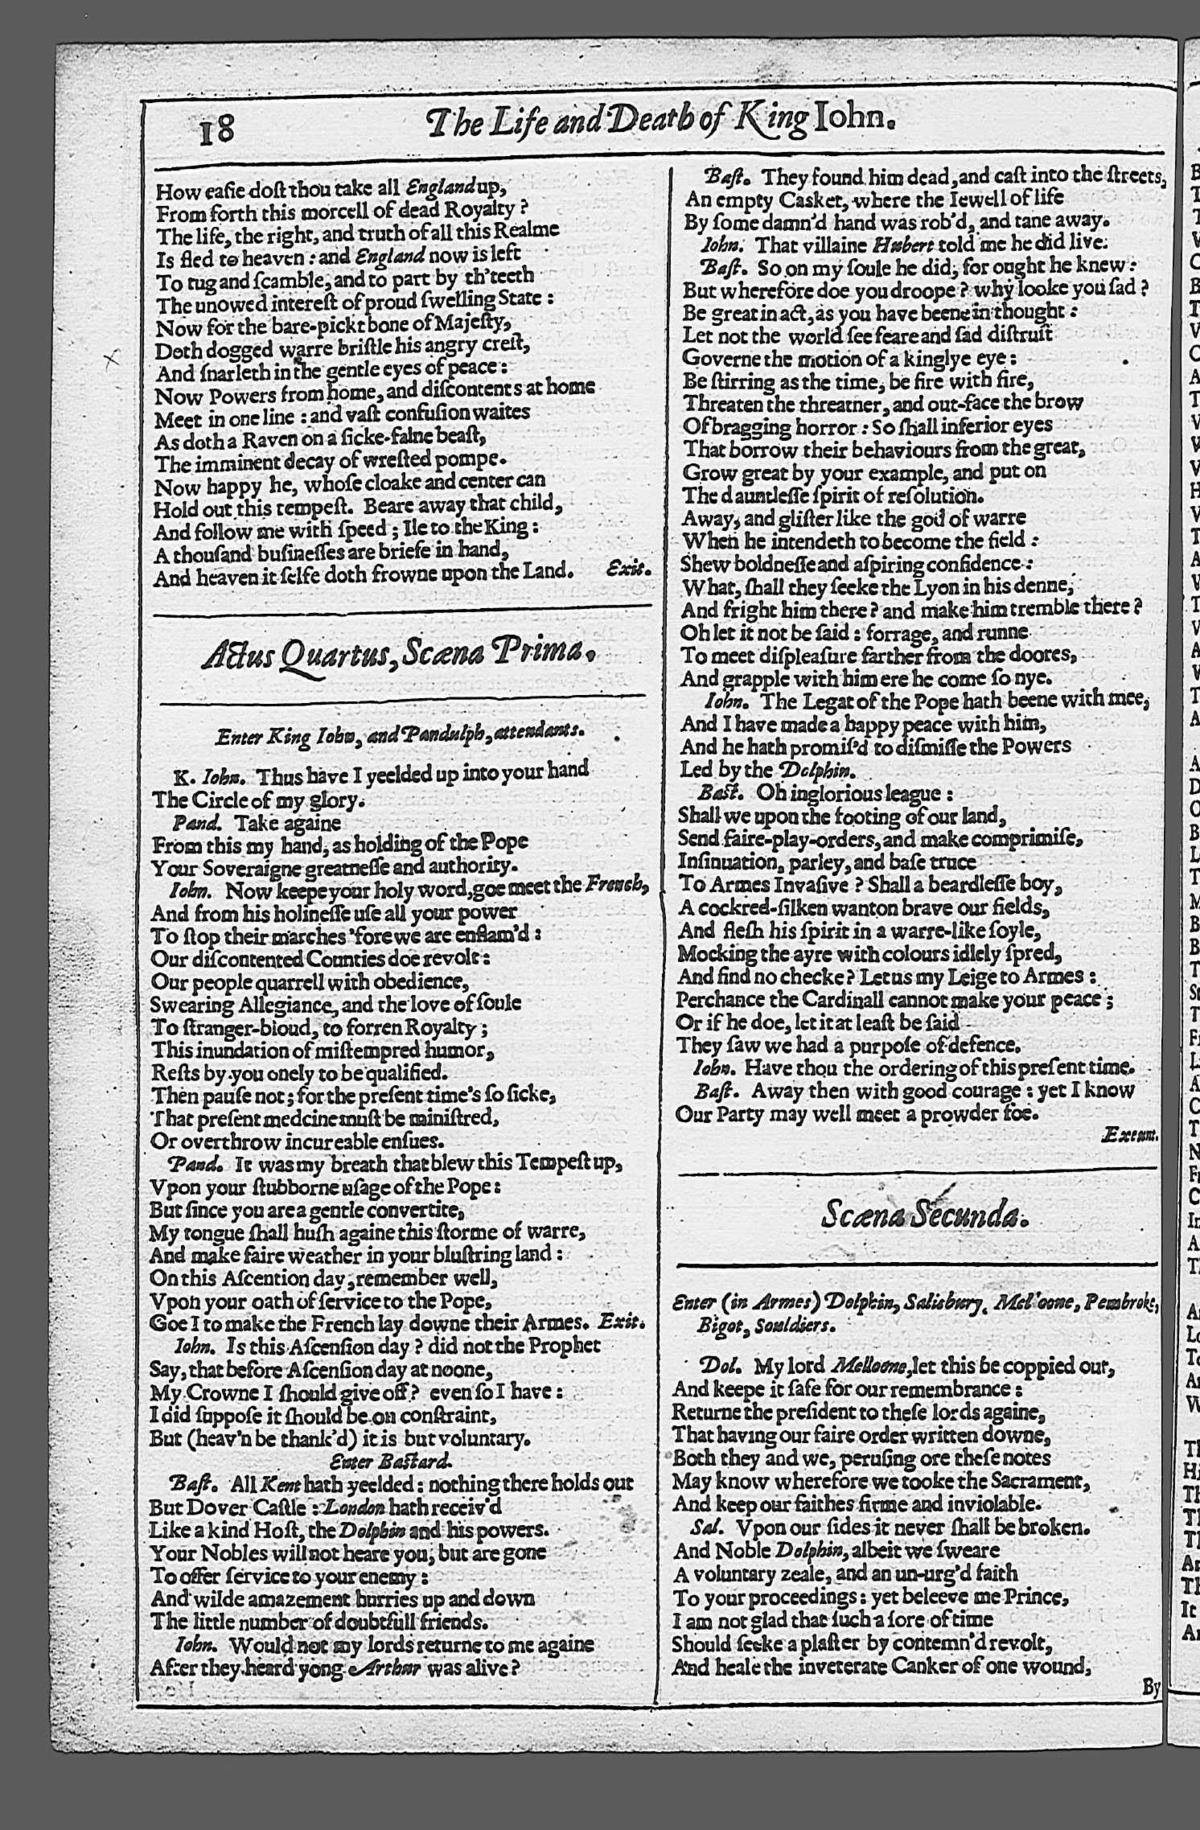 18
The Life and Death of King Iohn.
How easie dost thou take all England up,
From forth this morcell of dead Royalty?
The life, the right, and truth of all this Realme
Is fled to heaven: and England now is left
To tug and scamble, and to part by th'teeth
The unowed interest of proud swelling State:
Now for the bare-pickt bone of Majesty,
Doth dogged warre bristle his angry crest,
And snarleth in the gentle eyes of peace:
Now Powers from home, and discontents at home
Meet in one line: and vast confusion waites
As doth a Raven on a sicke-falne beast,
The imminent decay of wrested pompe.
Now happy he, whose cloake and center can
Hold out this tempest. Beare away that child,
And follow me with speed; Ile to the King:
A thousand businesses are briefe in hand,
And heaven it selfe doth frowne upon the Land. Exit.
Actus Quartus, Scæna Prima.
Enter King Iohn, and Pandulph, attendants.
K. Iohn. Thus have I yeelded up into your hand
The Circle of my glory.
Pand. Take againe
From this my hand, as holding of the Pope
Your Soveraigne greatnesse and authority.
Iohn. Now keepe your holy word, goe meet the French,
And from his holinesse use all your power
To stop their marches 'fore we are enflam'd:
Our discontented Counties doe revolt:
Our people quarrell with obedience,
Swearing Allegiance, and the love of soule
To stranger-bloud, to forren Royalty;
This inundation of mistempred humor,
Rests by you onely to be qualified.
Then pause not; for the present time's so sicke,
That present medcine must be ministred,
Or overthrow incureable ensues.
Pand. It was my breath that blew this Tempest up,
Vpon your stubborne usage of the Pope:
But since you are a gentle convertite,
My tongue shall hush againe this storme of warre,
And make faire weather in your blustring land:
On this Ascention day, remember well,
Vpon your oath of service to the Pope,
Goe I to make the French lay downe their Armes. Exit.
Iohn. Is this Ascension day? did not the Prophet
Say, that before Ascension day at noone,
My Crowne I should give off? even so I have:
I did suppose it should be on constraint,
But (heav'n be thank'd) it is but voluntary.
Enter Bastard.
Bast. All Kent hath yeelded: nothing there holds out
But Dover Castle: London hath receiv'd
Like a kind Host, the Dolphin and his powers.
Your Nobles will not heare you, but are gone
To offer service to your enemy:
And wilde amazement hurries up and down
The little number of doubtfull friends.
Iohn. Would not my lords returne to me againe
After they heard yong Arthur was alive?
Bast. They found him dead, and cast into the streets,
An empty Casket, where the Iewell of life
By some damn'd hand was rob'd, and tane away.
Iohn. That villaine Hubert told me he did live.
Bast. So on my soule he did, for ought he knew:
But wherefore doe you droope? why looke you sad?
Be great in act, as you have beene in thought:
Let not the world see feare and sad distrust
Governe the motion of a kinglye eye:
Be stirring as the time, be fire with fire,
Threaten the threatner, and out-face the brow
Of bragging horror: So shall inferior eyes
That borrow their behaviours from the great,
Grow great by your example, and put on
The dauntlesse spirit of resolution.
Away, and glister like the god of warre
When he intendeth to become the field:
Shew boldnesse and aspiring confidence:
What, shall they seeke the Lyon in his denne,
And fright him there? and make him tremble there?
Oh let it not be said: forrage, and runne
To meet displeasure farther from the doores,
And grapple with him ere he come so nye.
Iohn. The Legat of the Pope hath beene with mee,
And I have made a happy peace with him,
And he hath promis'd to dismisse the Powers
Led by the Dolphin.
Bast. Oh inglorious league:
Shall we upon the footing of our land,
Send faire-play-orders, and make comprimise,
Insinuation, parley, and base truce
To Armes Invasive? Shall a beardlesse boy,
A cockred-silken wanton brave our fields,
And flesh his spirit in a warre-like soyle,
Mocking the ayre with colours idlely spred,
And find no checke? Let us my Leige to Armes:
Perchance the Cardinall cannot make your peace;
Or if he doe, let it at least be said
They saw we had a purpose of defence.
Iohn. Have thou the ordering of this present time.
Bast. Away then with good courage: yet I know
Our Party may well meet a prowder foe.
Exeunt.
Scæna Secunda.
Enter (in Armes) Dolphin, Salisbury, Mel'oone, Pembroke,
Bigot, Souldiers.
Dol. My lord Melloone, let this be coppied out,
And keepe it safe for our remembrance:
Returne the president to these lords againe,
That having our faire order written downe,
Both they and we, perusing ore these notes
May know wherefore we tooke the Sacrament,
And keep our faithes firme and inviolable.
Sal. Vpon our sides it never shall be broken.
And Noble Dolphin, albeit we sweare
A voluntary zeale, and an un-urg'd faith
To your proceedings: yet beleeve me Prince,
I am not glad that such a sore of time
Should seeke a plaster by contemn'd revolt,
And heale the inveterate Canker of one wound,
By